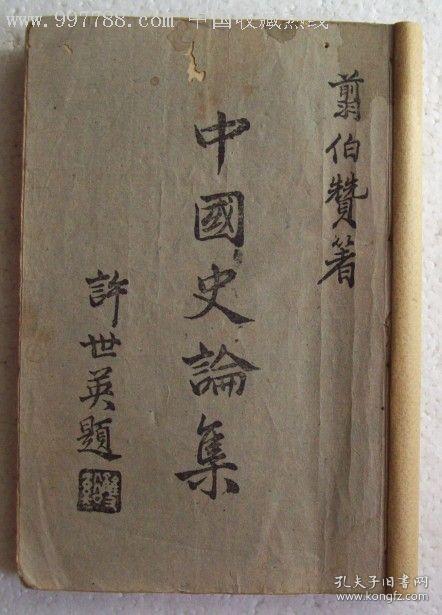 www.997788.com 中国收藏热线
翦伯贊著
中國史論集
許世英題
孔夫子旧书网
www.kongfz.com